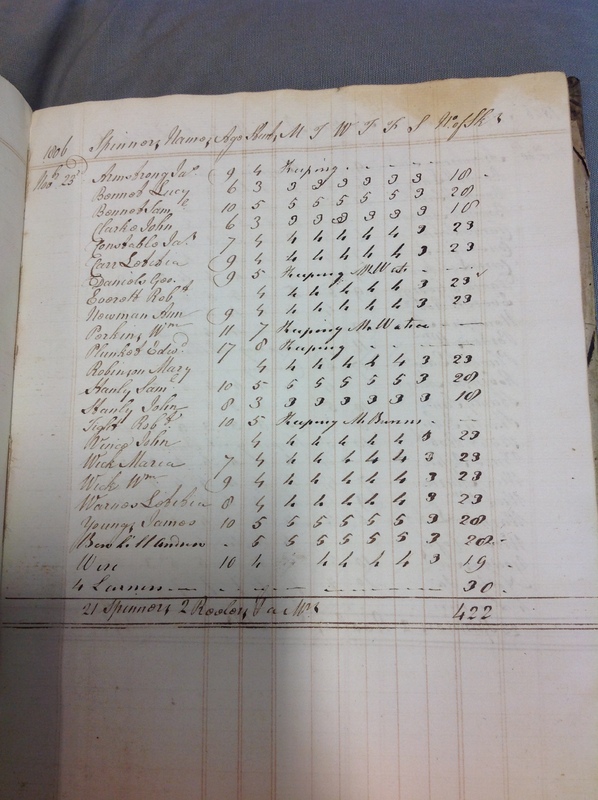 1806 Spinners Names Age Rent M T W T F S No. of Sk s
Novr 23d Armstrong Jas 9 4 Keeping . - - - - -
Bennet Lucy 6 3 3 3 3 3 3 3 18 -
Bennet Saml 10 5 5 5 5 5 5 3 28
Clarke John 6 3 3 3 3 3 3 3 18
Constable Jas 7 4 4 4 4 4 4 3 23
Carr Lobekia 9 4 4 4 4 4 4 3 23
Daniels Geo. 9 5 Keeping Mr West - -
Everett Robt 4 4 4 4 4 4 3 23
Newman Ann 9 4 4 4 4 4 4 3 23
Perkins Wm 11 7 Keeping Mr Waters —
Plunket Edwd 17 8 Keeping - - - - -
Robinson Mary 4 4 4 4 4 4 3 23
Hanly Saml 10 5 5 5 5 5 5 3 28
Hanly John 8 3 3 3 3 3 3 3 18
Tight Robt 10 5 Keeping Mr Bunns - —
Wence John 4 4 4 4 4 4 3 23
Wick Maria 7 4 4 4 4 4 4 3 23
Wick Wm 9 4 4 4 4 4 4 3 23
Warnes Lobekia 8 4 4 4 4 4 4 3 23
Youngs James 10 5 5 5 5 5 5 3 28
- 5 5 5 5 5 5 3 28 -
10 4 4 4 4 4 3 19
4 Larners — - - - - - 30 -
21 Spinners 2 Reelers 422